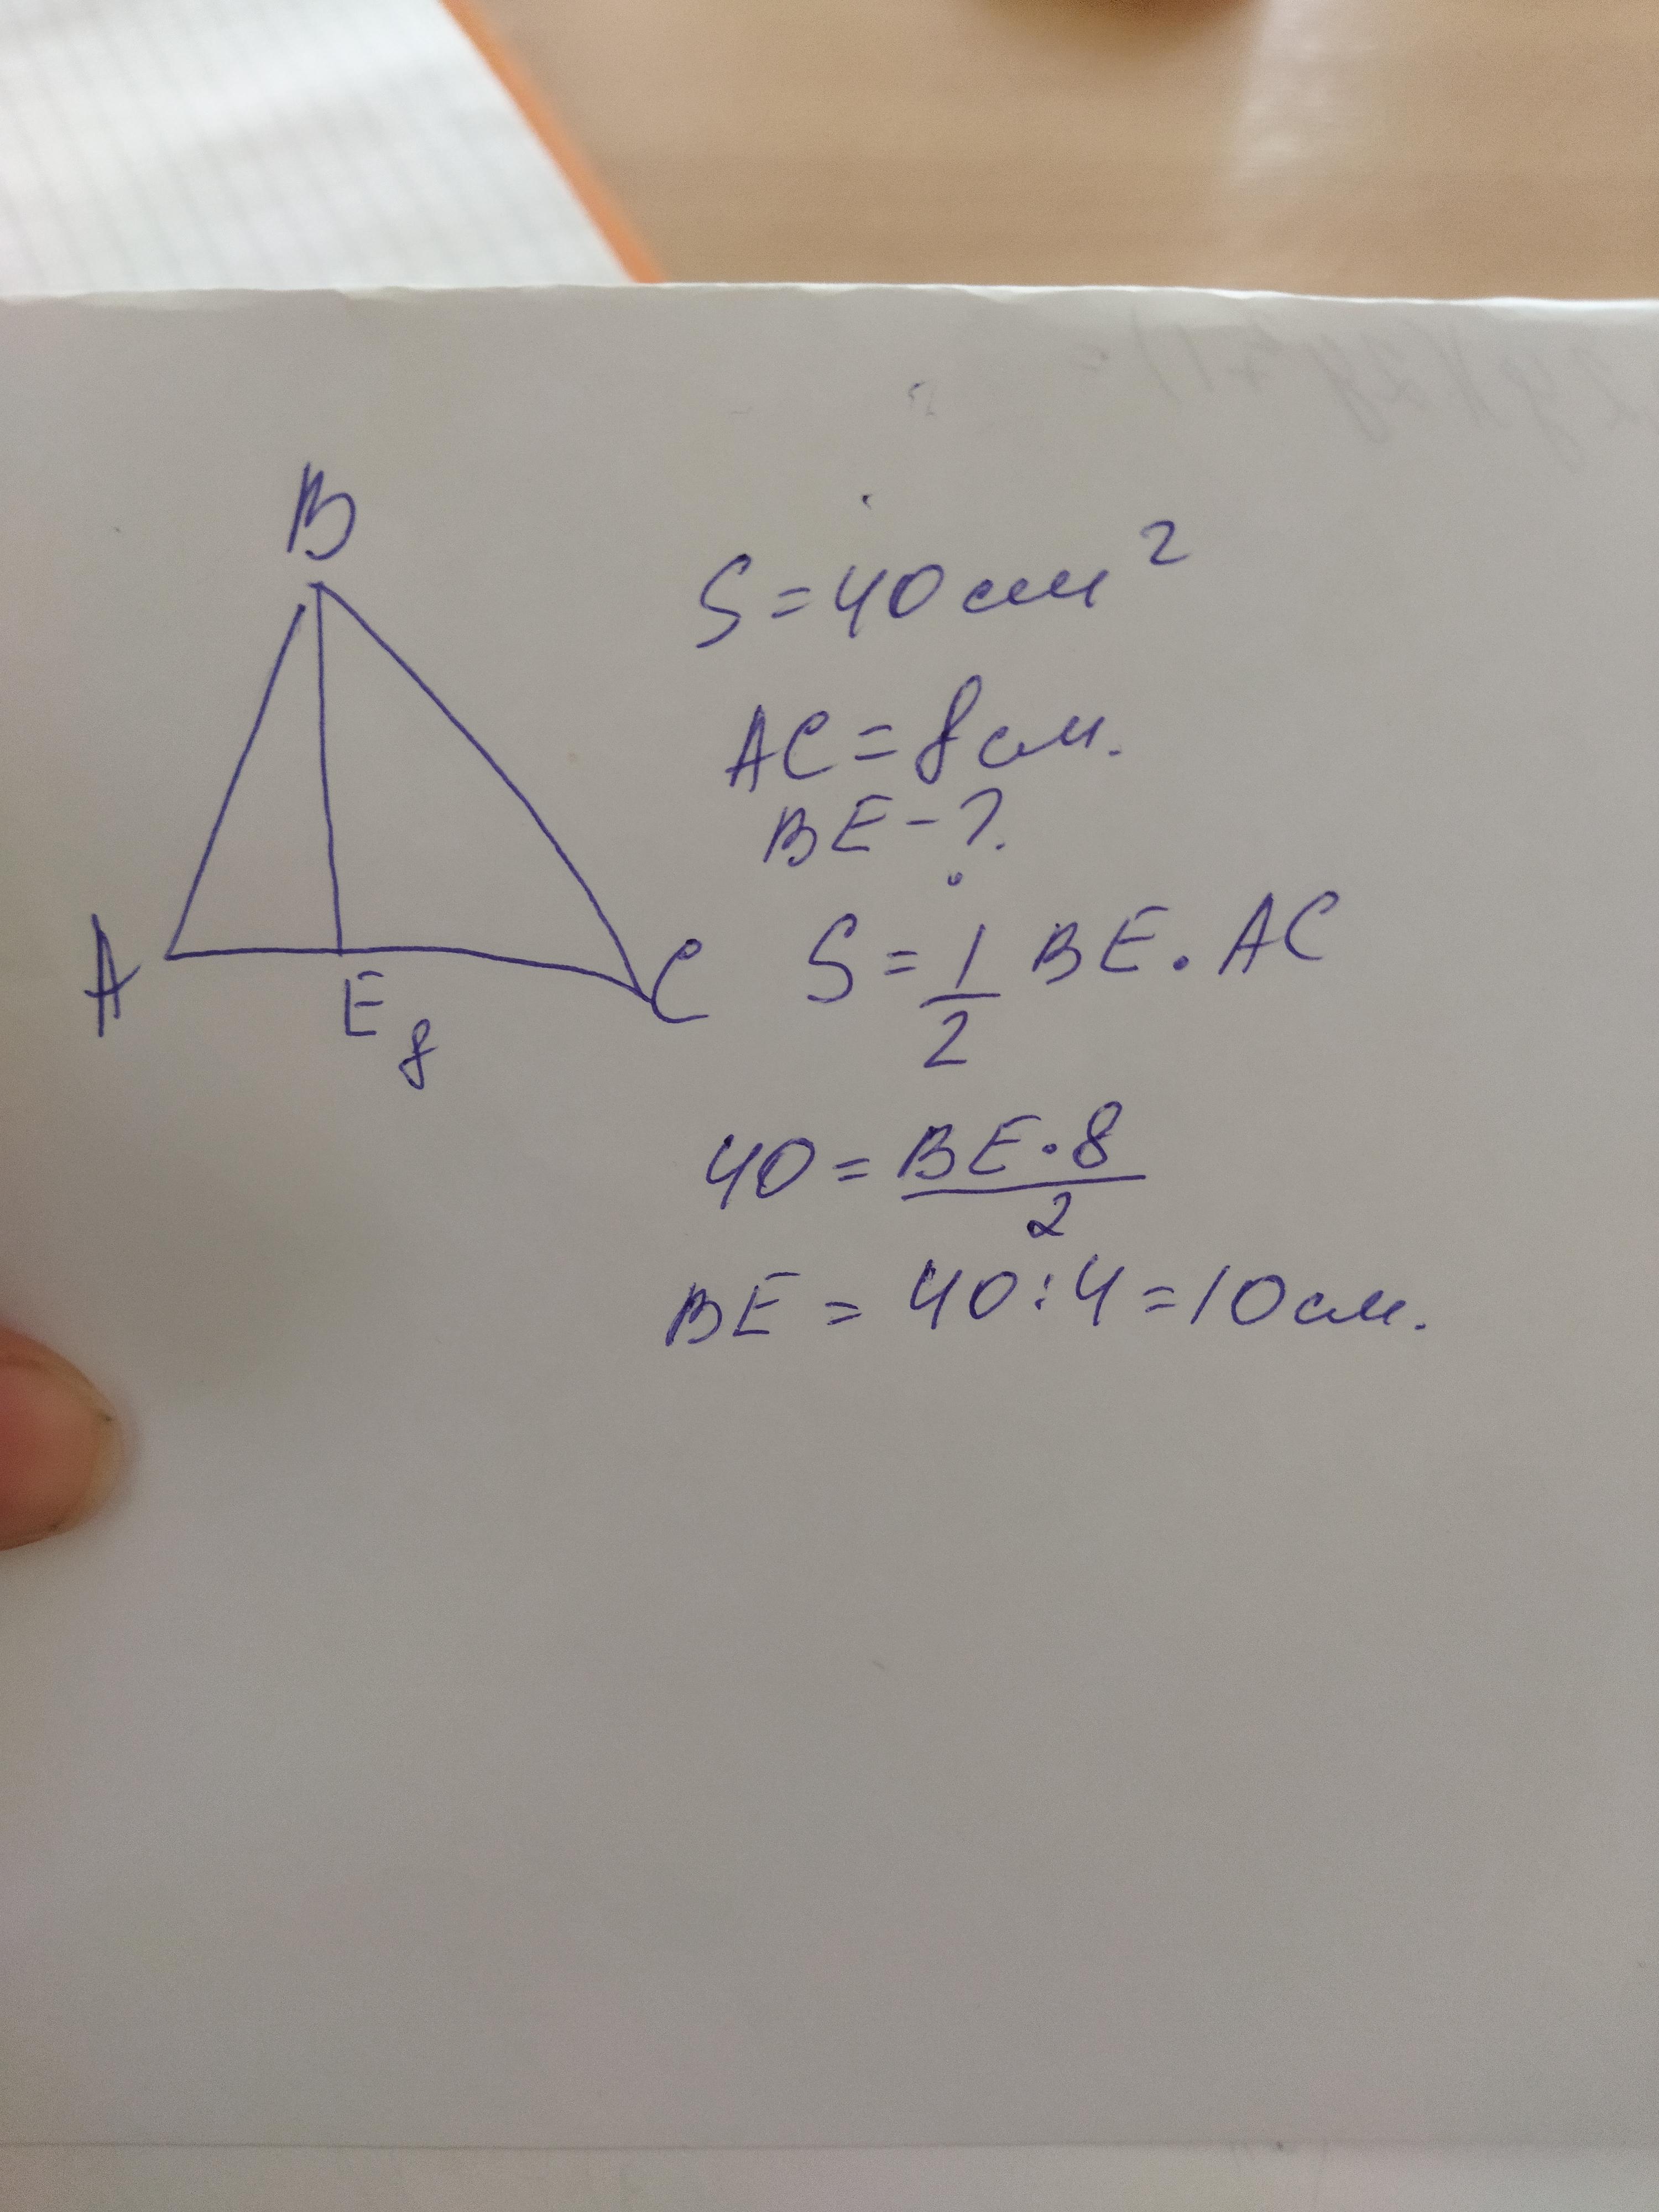 B
A
E
C
8
S = 40 см²
AC = 8 см.
BE - ?
S = 1/2 BE · AC
40 = BE · 8 / 2
BE = 40 : 4 = 10 см.